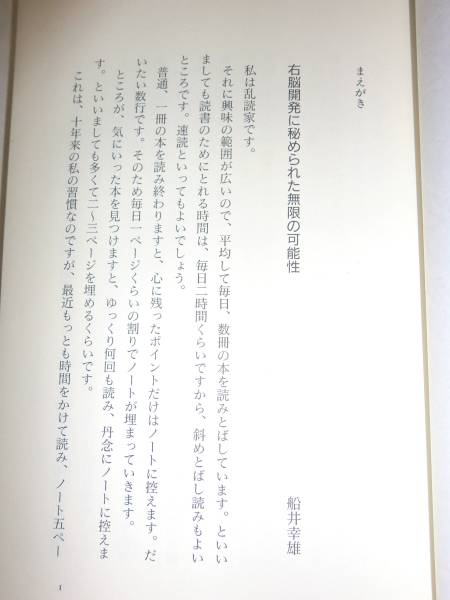 まえがき
右脳開発に秘められた無限の可能性
船井幸雄
私は乱読家です。
それに興味の範囲が広いので、平均して毎日、数冊の本を読みとばしています。といい
ましても読書のためにとれる時間は、毎日二時間くらいですから、斜めとばし読みもよい
ところです。速読といってもよいでしょう。
普通、一冊の本を読み終わりますと、心に残ったポイントだけはノートに控えます。だ
いたい数行です。そのため毎日一ページくらいの割りでノートが埋まっていきます。
ところが、気にいった本を見つけますと、ゆっくり何回も読み、丹念にノートに控えま
す。といいましても多くて二〜三ページを埋めるくらいです。
これは、十年来の私の習慣なのですが、最近もっとも時間をかけて読み、ノート五ペー
1